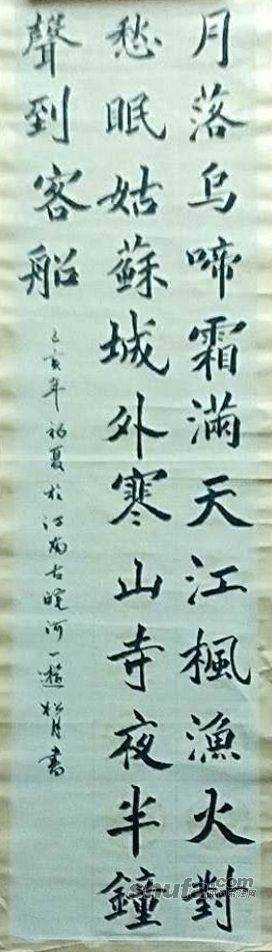 月落烏啼霜滿天江楓漁火對
愁眠姑蘇城外寒山寺夜半鐘
聲到客船
己亥年初夏於江南古皖河一遊松月書